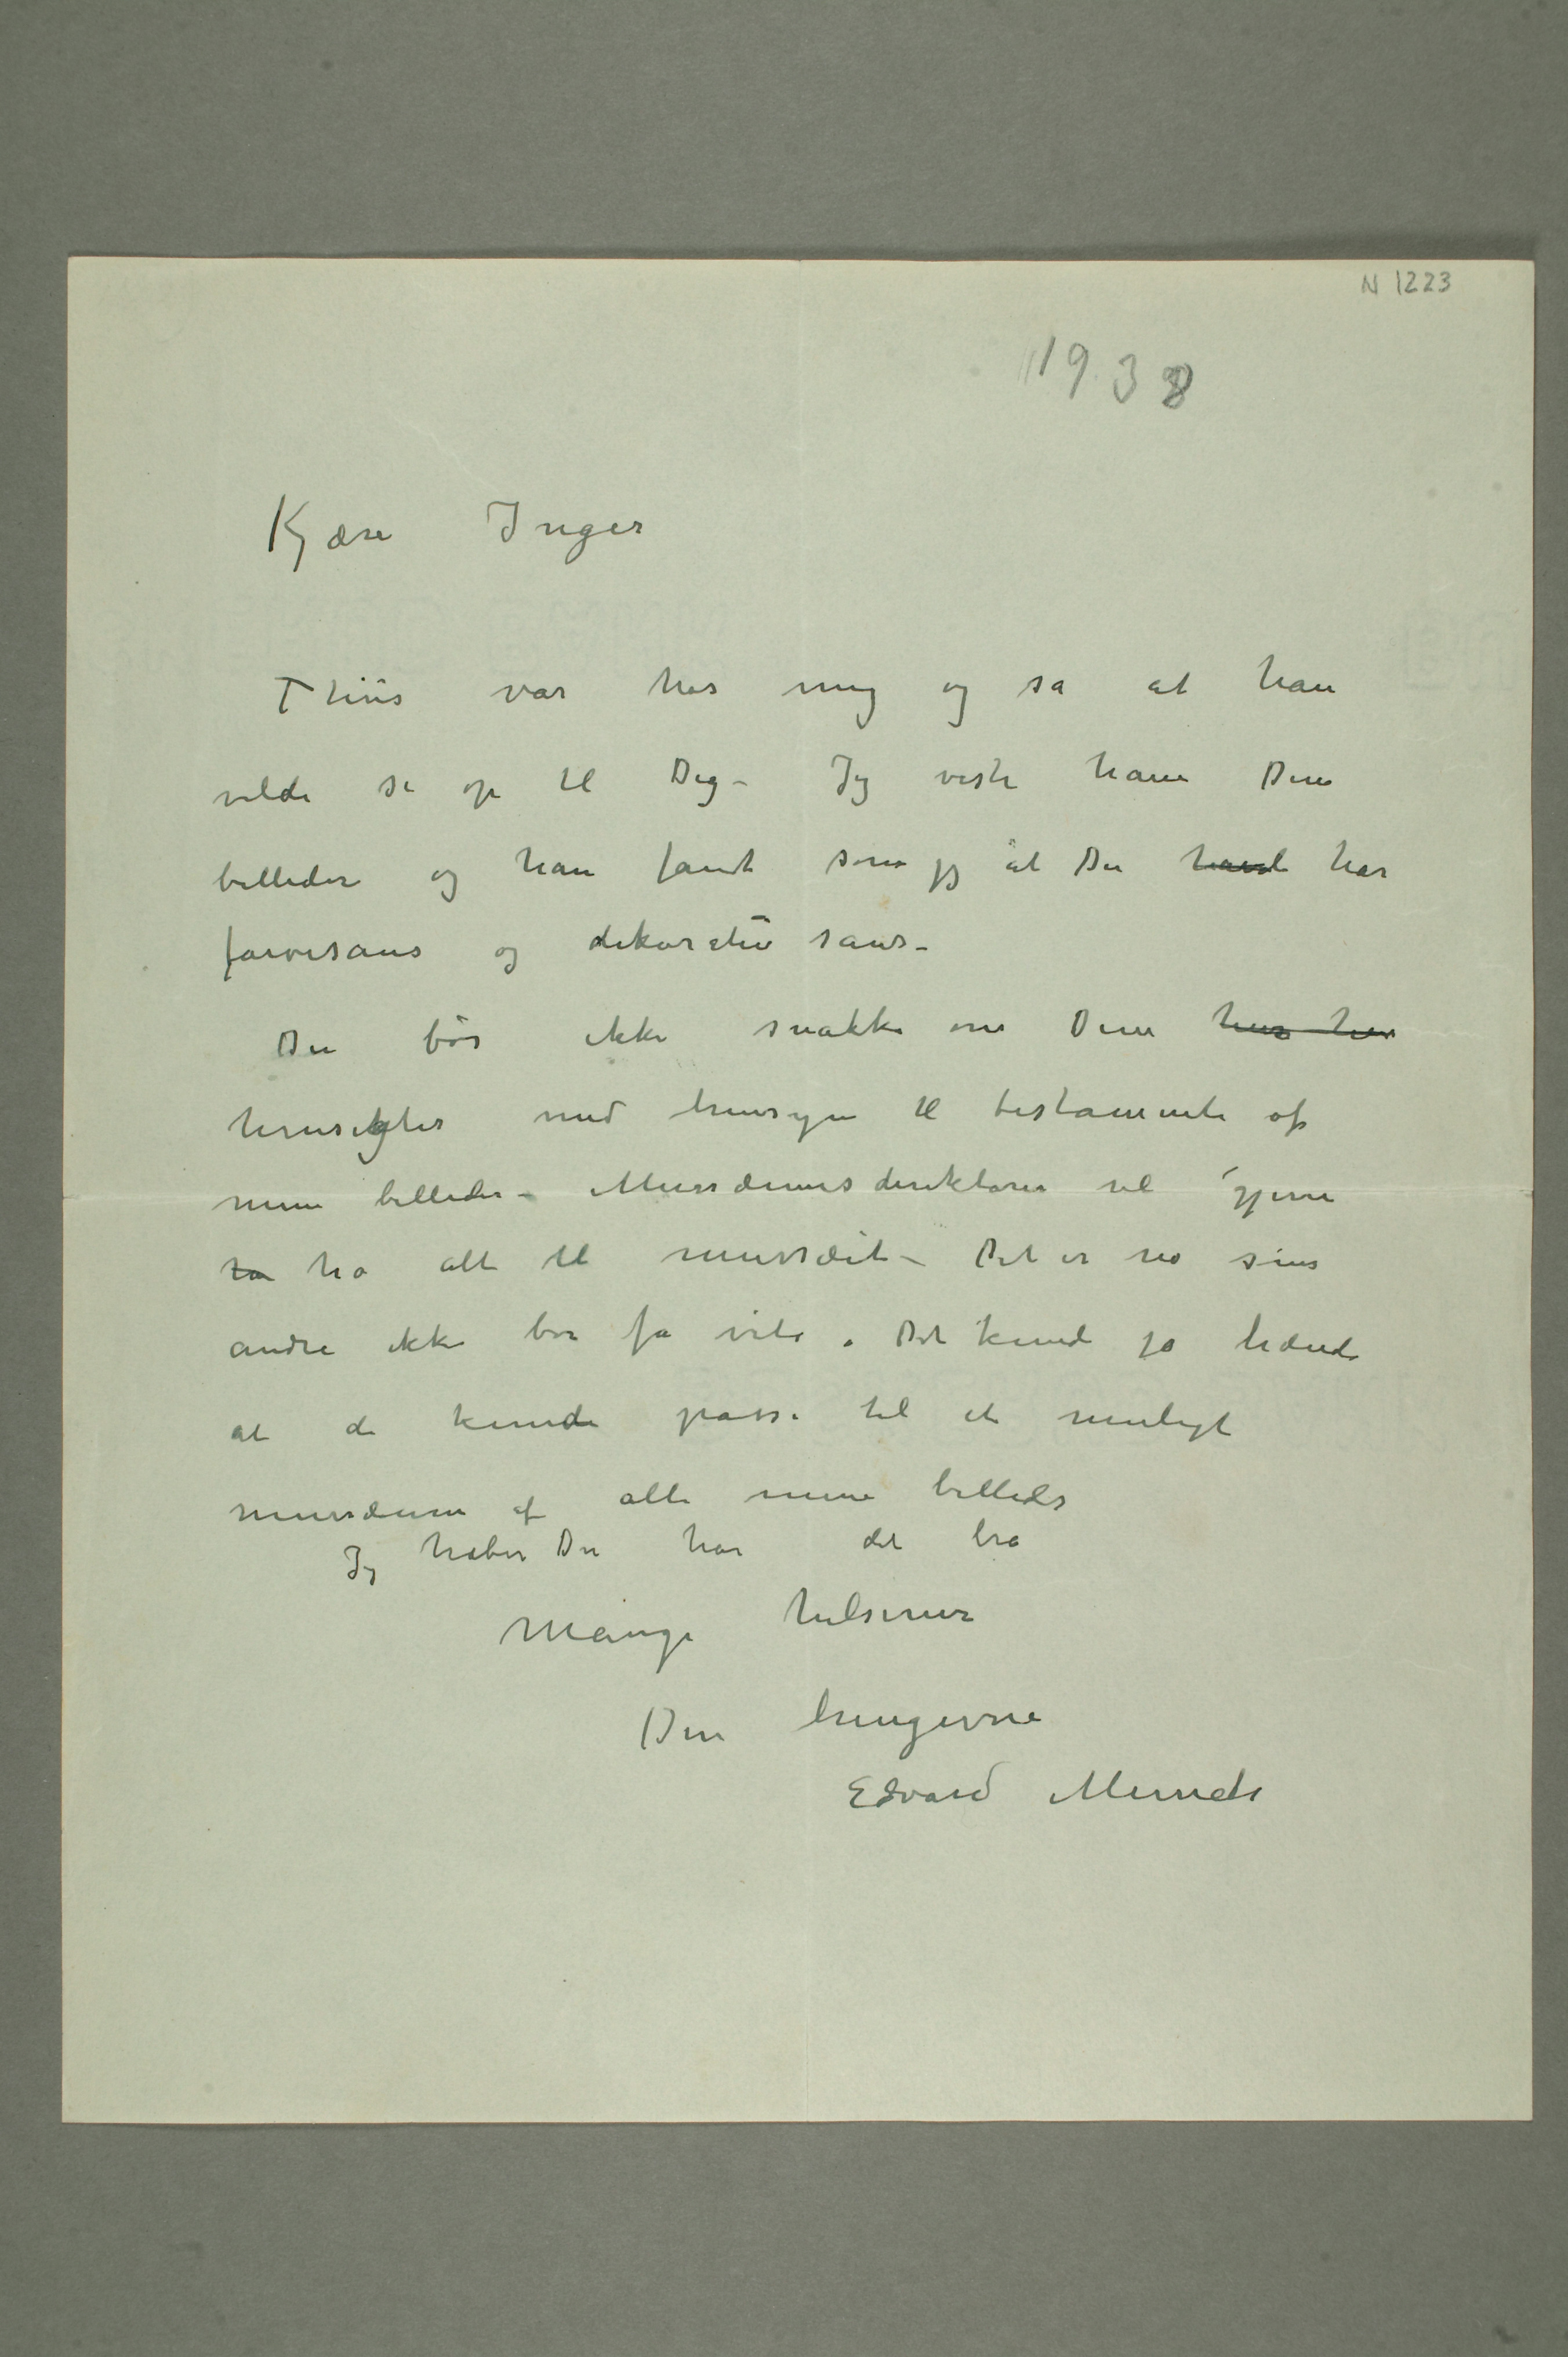 N 1223
1938
Kjære Inger
Thiis var hos mig og sa at han
vilde se op til Dig – Jeg viste ham Dine
billeder og han fandt som jeg at Du havd har
farvesans og dekorativ sans –
Du bør ikke snakke om Dine hen hen
hensigter med hensyn til testamente af
mine billeder – Musæumsdirektører vil gjerne
ha ha alt til musæet – Det er no som
andre ikke bør få vite. Det kunde jo hænde
at de kunde passe til et muligt
musæum af alle mine billeder
Jeg håber Du har det bra
Mange hilsener
Din hengivne
Edvard Munch